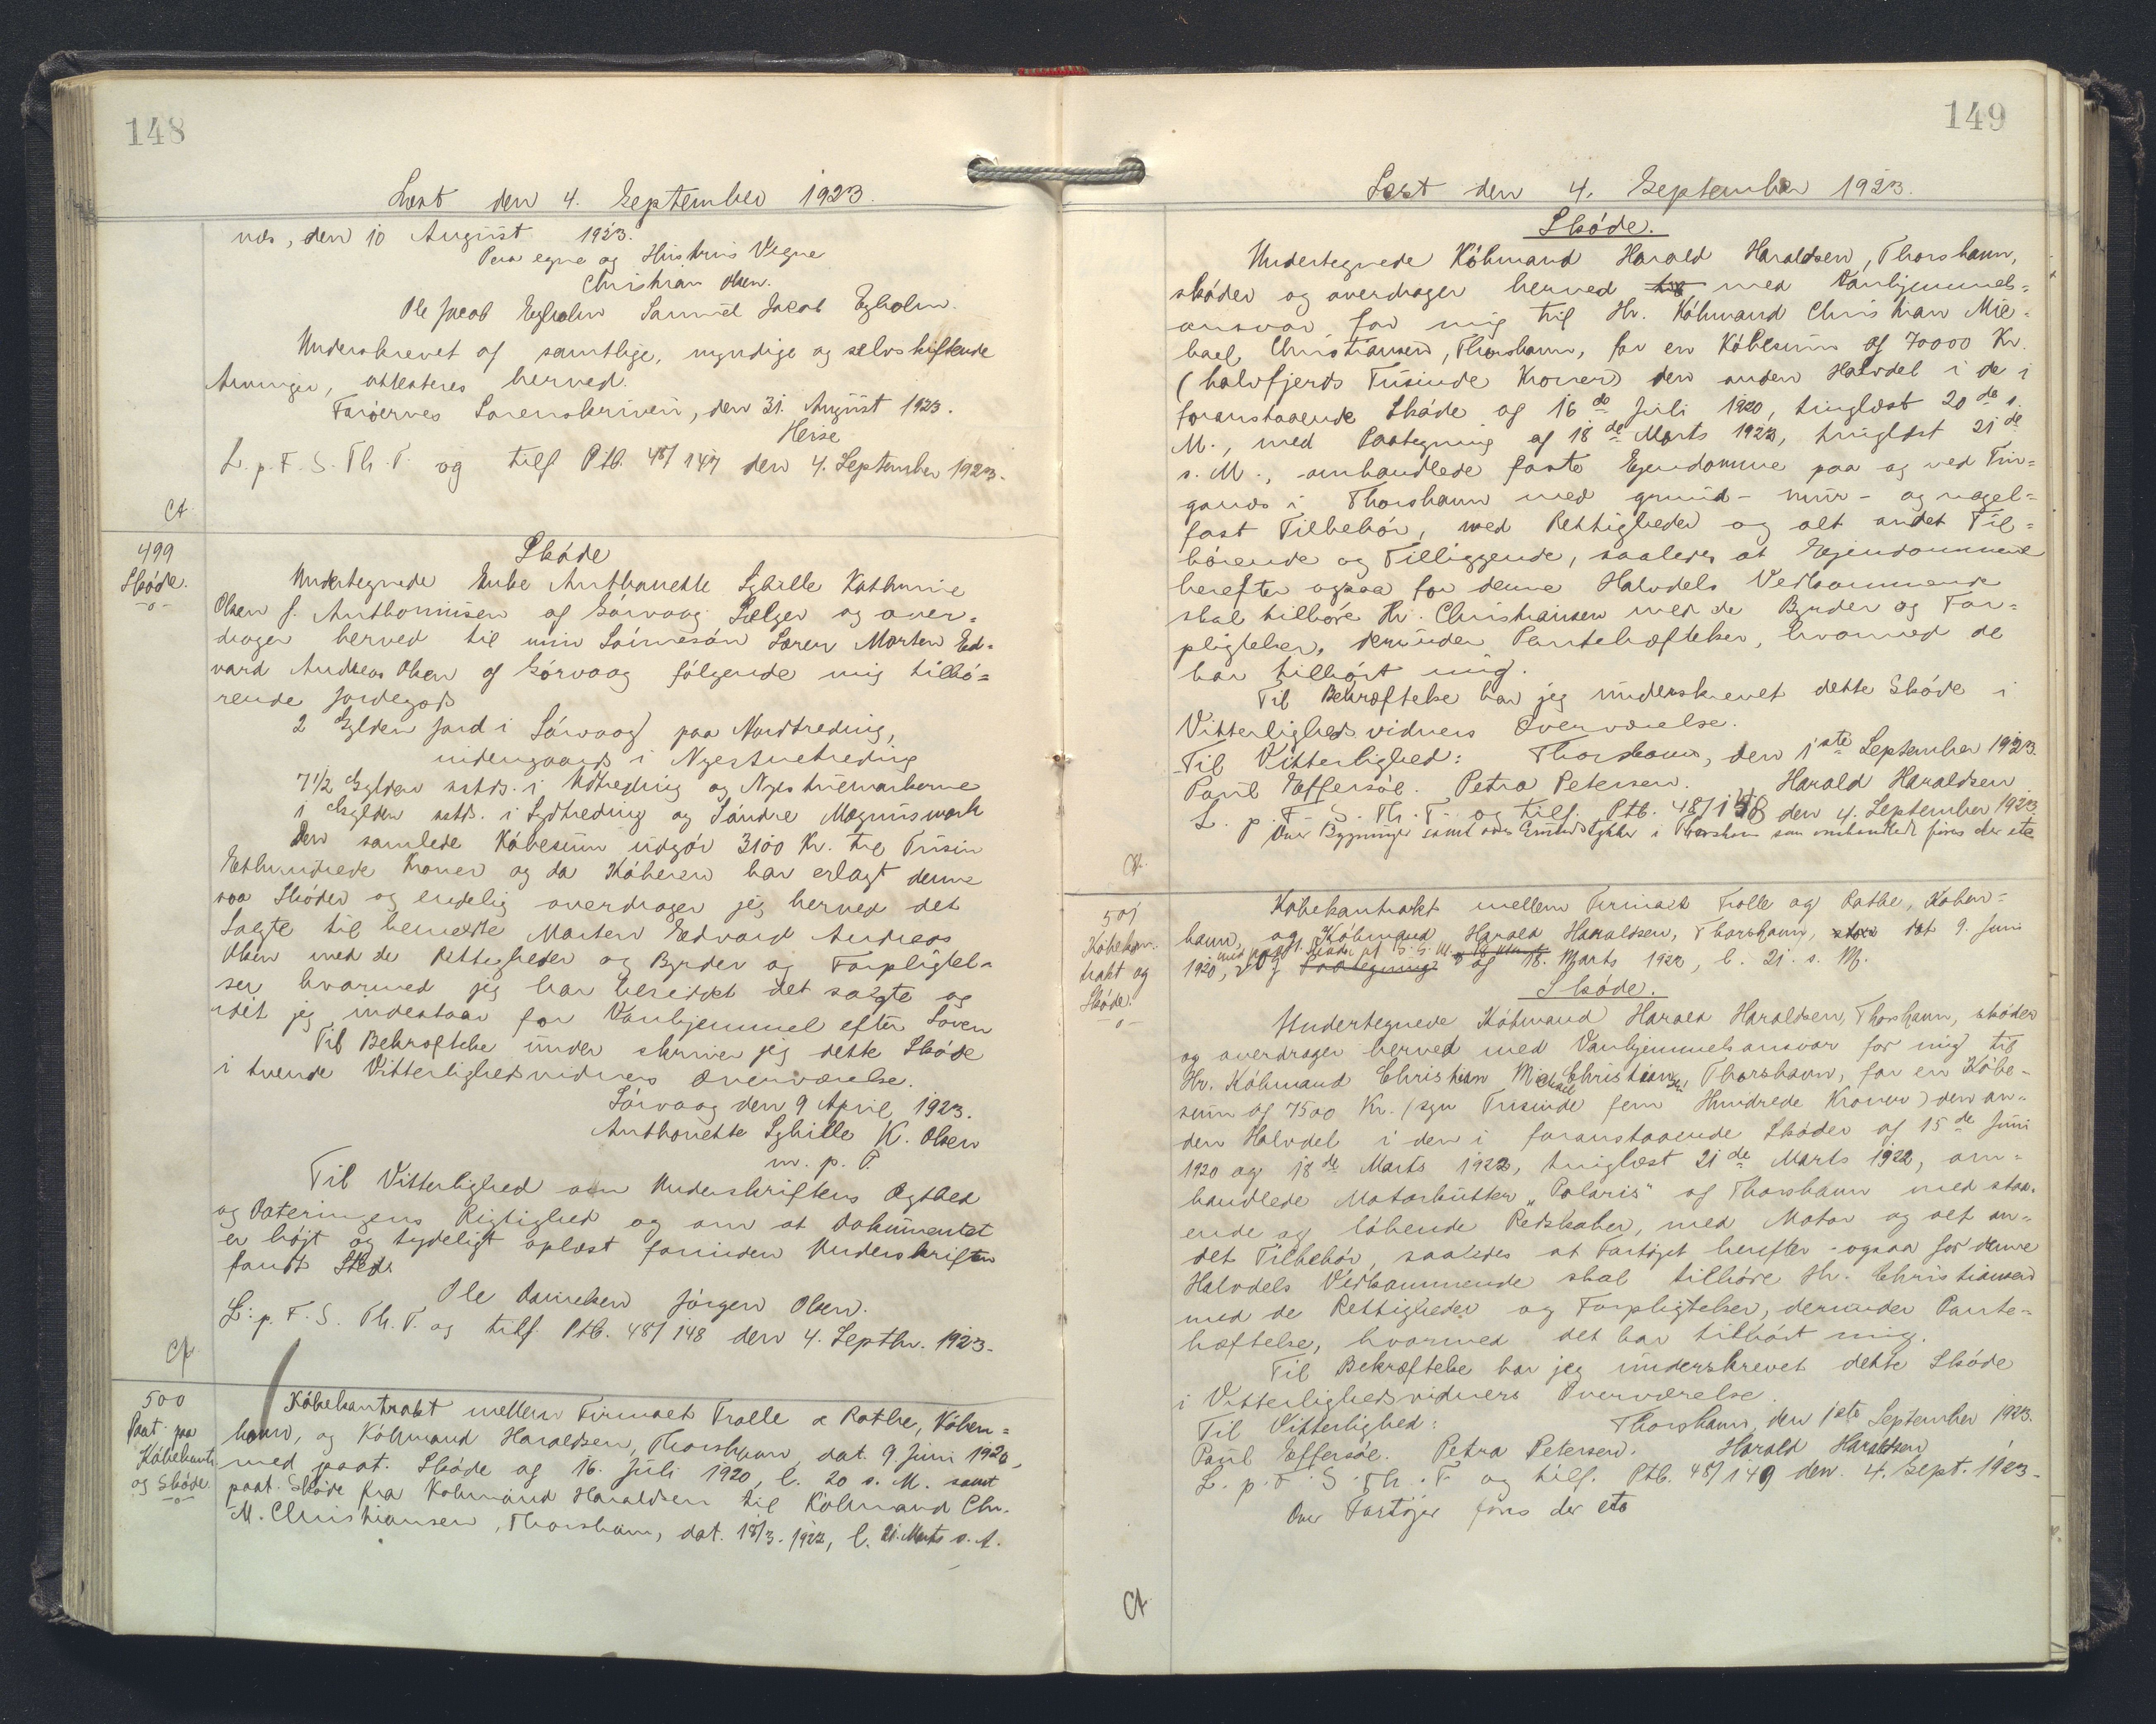 148
Læst den 4. September 1923.
næs, den 10 August 1923.
Paa egne og Hustrus Vegne
Christian Olsen.
Ole Jacob Eyholm Samuel Jacob Eyholm.
Underskrevet af samtlige, myndige og selvskiftende
Arvinger, attesteres herved.
Færøernes Sorenskriveri, den 31. August 1923.
Heise
L. p. F. S. Th. T. og tilf Ptb. 48/147 den 4. September 1923.
Ct
499
Skøde.
-o-
Skøde
Undertegnede Enke Anthonette Sybille Kathrine
Olsen f. Anthoniussen af Sørvaag Sælger og over-
drager herved til min Sønnesøn Søren Morten Ed-
vard Andreas Olsen af Sørvaag følgende mig tilhø-
rende Jordegods
2 Gylden Jord i Sørvaag paa Nordtreding,
indengaards i Nyestuetreding
7 1/2 Gylden sstds. i Udtreding og Nyestuemarkerne
1 Gylden sstds. i Sydtreding og Søndre Magnusmark
Den samlede Købesum udgør 3100 Kr. tre Tusin
Ethundrede Kroner og da Køberen har erlagt denne
saa Skøder og endelig overdrager jeg herved det
Solgte til bemeldte Morten Edvard Andreas
Olsen med de Rettigheder og Byrder og Forpligtel-
ser hvormed jeg har besiddet det solgte og
idet jeg indestaar for Vanhjemmel efter Loven
Til Bekræftelse under skriver jeg dette Skøde
i tvende Vitterlighedsvidners Overværelse.
Sørvaag den 9 April 1923.
Anthonette Sybille K. Olsen
m. p. P.
Til Vitterlighed om Underskriftens Ægthed
og Dateringens Rigtighed og om at Dokumentet
er højt og tydeligt oplæst forinden Underskriften
fandt Sted.
Ole Danielsen Jørgen Olsen.
L: p. F. S. Th. T. og tilf. Ptb. 48/148 den 4. Septbr. 1923.
Ct
500
Paat. paa
Købekontr.
og Skøde.
-o-
Købekontrakt mellem Firmaet Trolle & Rothe, Køben-
havn, og Købmand Haraldsen, Thorshavn dat. 9 Juni 1920,
med paat. Skøde af 16. Juli 1920, l. 20 s. M. samt
paat. Skøde fra Købmand Haraldsen til Købmand Chr.
M. Christiansen, Thorshavn, dat. 18/3. 1922, l. 21. Marts s. A.
149
Læst den 4. September 1923.
Skøde.
Undertegnede Købmand Harald Haraldsen, Thorshavn,
skøder og overdrager herved til med Vanhjemmels-
ansvar for mig til Hr. Købmand Christian Mic-
hael Christiansen, Thorshavn, for en Købesum af 70000 Kr.
(halvfjerds Tusinde Kroner) den anden Halvdel i de i
foranstaaende Skøde af 16de Juli 1920, tinglæst 20de s.
M., med Paategning af 18de Marts 1922, tinglæst 21de
s. M., omhandlede faste Ejendomme paa og ved Tin-
ganæs i Thorshavn med grund- mur- og nagel-
fast Tilbehør, med Rettigheder og alt andet Til-
hørende og Tilliggende, saaledes at Ejendommene
herefter ogsaa for denne Halvdels Vedkommende
skal tilhøre Hr. Christiansen med de Byrder og For-
pligtelser, derunder Pantehæftelser, hvormed de
har tilhørt mig.
Til Bekræftelse har jeg underskrevet dette Skøde i
Vitterlighedsvidners Overværelse.
Til Vitterlighed: Thorshavn, den 1ste September 1923.
Paul Effersøe. Petra Petersen. Harald Haraldsen
L. p. F. S. Th. T. og tilf. Ptb. 48/148 den 4. September 1923.
Over Bygninger samt over Grundstykker i Thorshavn som omhandlede føres der ete
Ct.
501
Købekon-
trakt og
Skøde.
-o-
Købekontrakt mellem Firmaet Trolle og Rothe, Køben-
havn, og Købmand Harald Haraldsen, Thorshavn, dat 9. Juni
1920, og Paategning af 18. Marts 1922, l. 21. s. M.
Skøde.
Undertegnede Købmand Harald Haraldsen, Thorshavn, skøder
og overdrager herved med Vanhjemmelsansvar for mig til
Hr. Købmand Christian Michael Christiansen, Thorshavn, for en Købe-
sum af 7500 Kr. (syv Tusinde fem Hundrede Kroner) den an-
den Halvdel i den i foranstaaende Skøder af 15de Juni
1920 og 18de Marts 1922, tinglæst 21de Marts 1922, om-
handlede Motorkutter "Polaris" af Thorshavn med staa-
ende og løbende Redskaber, med Motor og alt an-
det Tilbehør, saaledes at Fartøjet herefter - ogsaa for denne
Halvdels Vedkommende skal tilhøre Hr. Christiansen
med de Rettigheder og Forpligtelser, derunder Pante-
hæftelse, hvormed det har tilhørt mig.
Til Bekræftelse har jeg underskrevet dette Skøde
i Vitterlighedsvidners Overværelse.
Til Vitterlighed: Thorshavn, den 1ste September 1923.
Paul Effersøe. Petra Petersen. Harald Haraldsen
L. p. F. S. Th. T. og tilf. Ptb. 48/149 den. 4. Sept. 1923.
Over Fartøjer føres der ete
Ct